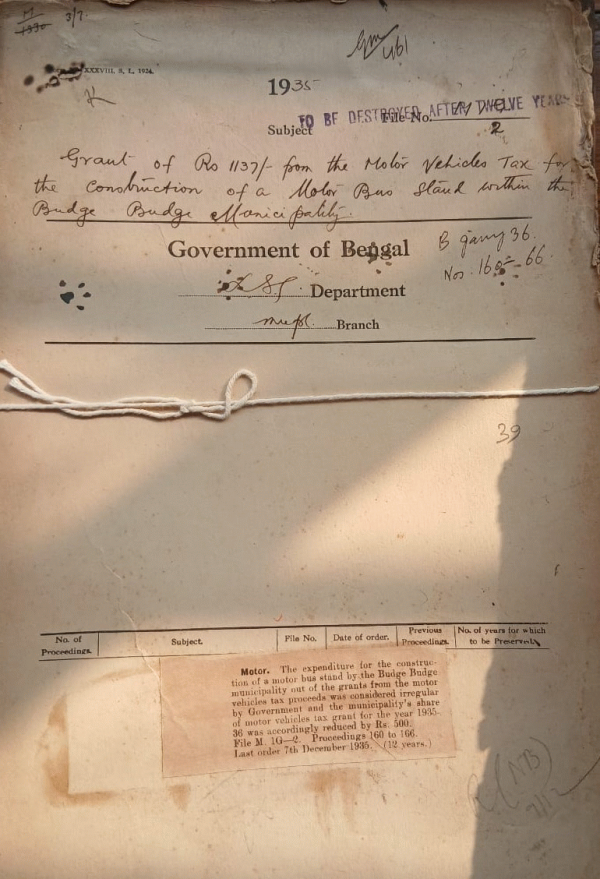 3/7
XXXVIII. S. L., 1934.
461
1935
TO BE DESTROYED AFTER TWELVE YEARS
Subject
File No.
2
Grant of Rs 1137/- from the Motor Vehicles Tax for
the Construction of a Motor Bus Stand within the
Budge Budge Municipality.
Government of Bengal
B 36.
Nos. 160-66.
L. S. G. Department
Branch
39
No. of Proceedings.
Subject.
File No.
Date of order.
Previous Proceedings.
No. of years for which to be Preserved.
Motor. The expenditure for the construc-
tion of a motor bus stand by the Budge Budge
municipality out of the grants from the motor
vehicles tax proceeds was considered irregular
by Government and the municipality's share
of motor vehicles tax grant for the year 1935-
36 was accordingly reduced by Rs. 500.
File M. 1G—2. Proceedings 160 to 166.
Last order 7th December 1935. (12 years.)